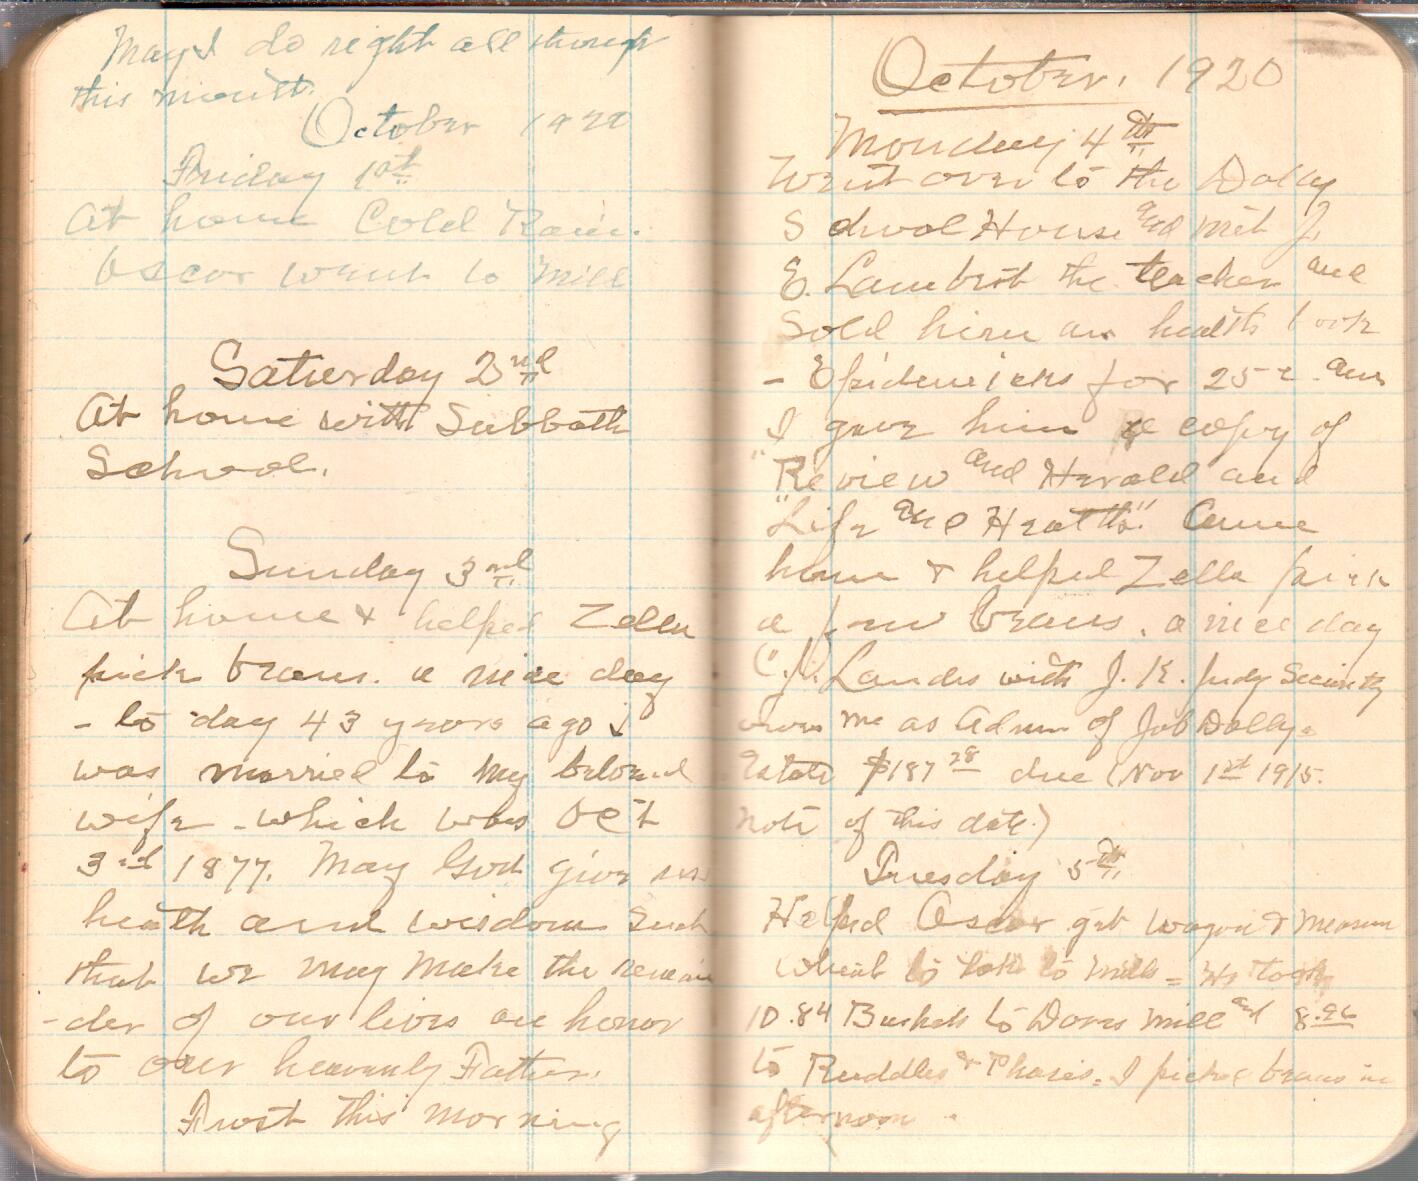 May I do right all through
this month.
October 1920
Friday 1st
At home Cold Rain.
Oscar went to Mill
Saturday 2nd
At home with Sabbath
School.
Sunday 3rd
At home & helped Zella
pick beans. a nice day
- to day 43 years ago I
was married to my beloved
wife - which was Oct
3rd 1877. May God give us
health and wisdom such
that we may make the remain
-der of our lives an honor
to our heavenly Father.
Frost this morning
October. 1920
Monday 4th
Went over to the Dolly
School House and met J.
E. Lambert the teacher and
Sold him an health book
- Epidemicks for 25¢ and
I gave him a copy of
"Review and Herald and
"Life and Health" Came
home & helped Zella pick
a few beans. a nice day
C. Landes with J. K. Judy Security
owes me as Admr of Job Dolly
Estate $187 28 due (Nov 1st 1915.
note of this date.)
Tuesday 5th
Helped Oscar get wagon & measure
wheat to take to mills = He took
10.84 Bushels to Dovs mill and 8.96
to Ruddles & . I picked beans in
afternoon.